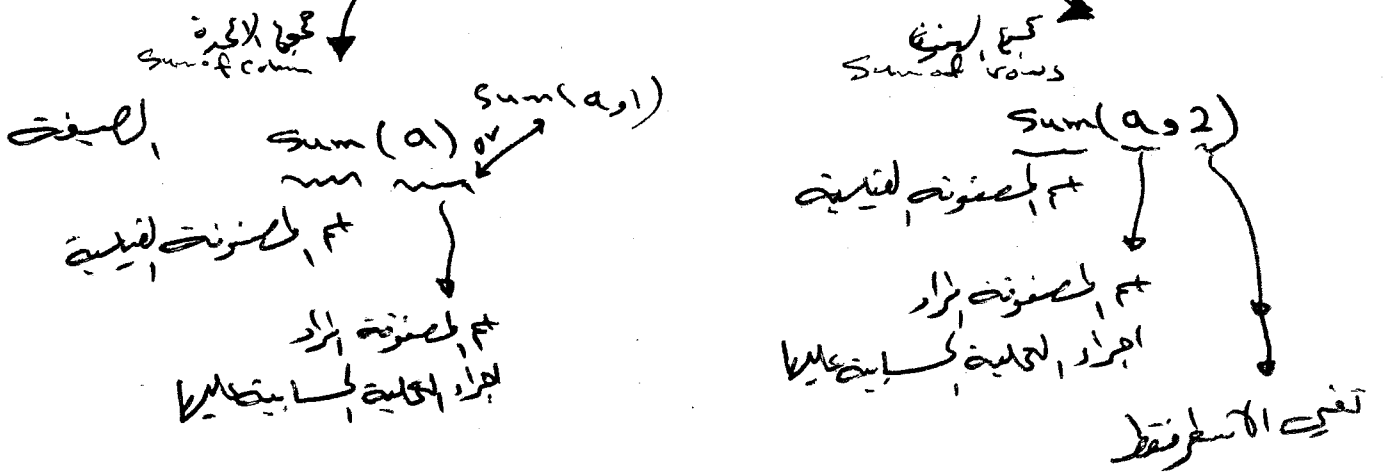 مجموع الاعمدة
Sum of colum
الصيغة
Sum(a) or Sum(a,1)
اسم المصفوفة القياسية
اسم المصفوفة المراد
اجراء العملية الحسابية عليها
مجموع الصفوف
Sum of rows
Sum(a,2)
اسم المصفوفة القياسية
اسم المصفوفة المراد
اجراء العملية الحسابية عليها
تعني الاسطر فقط